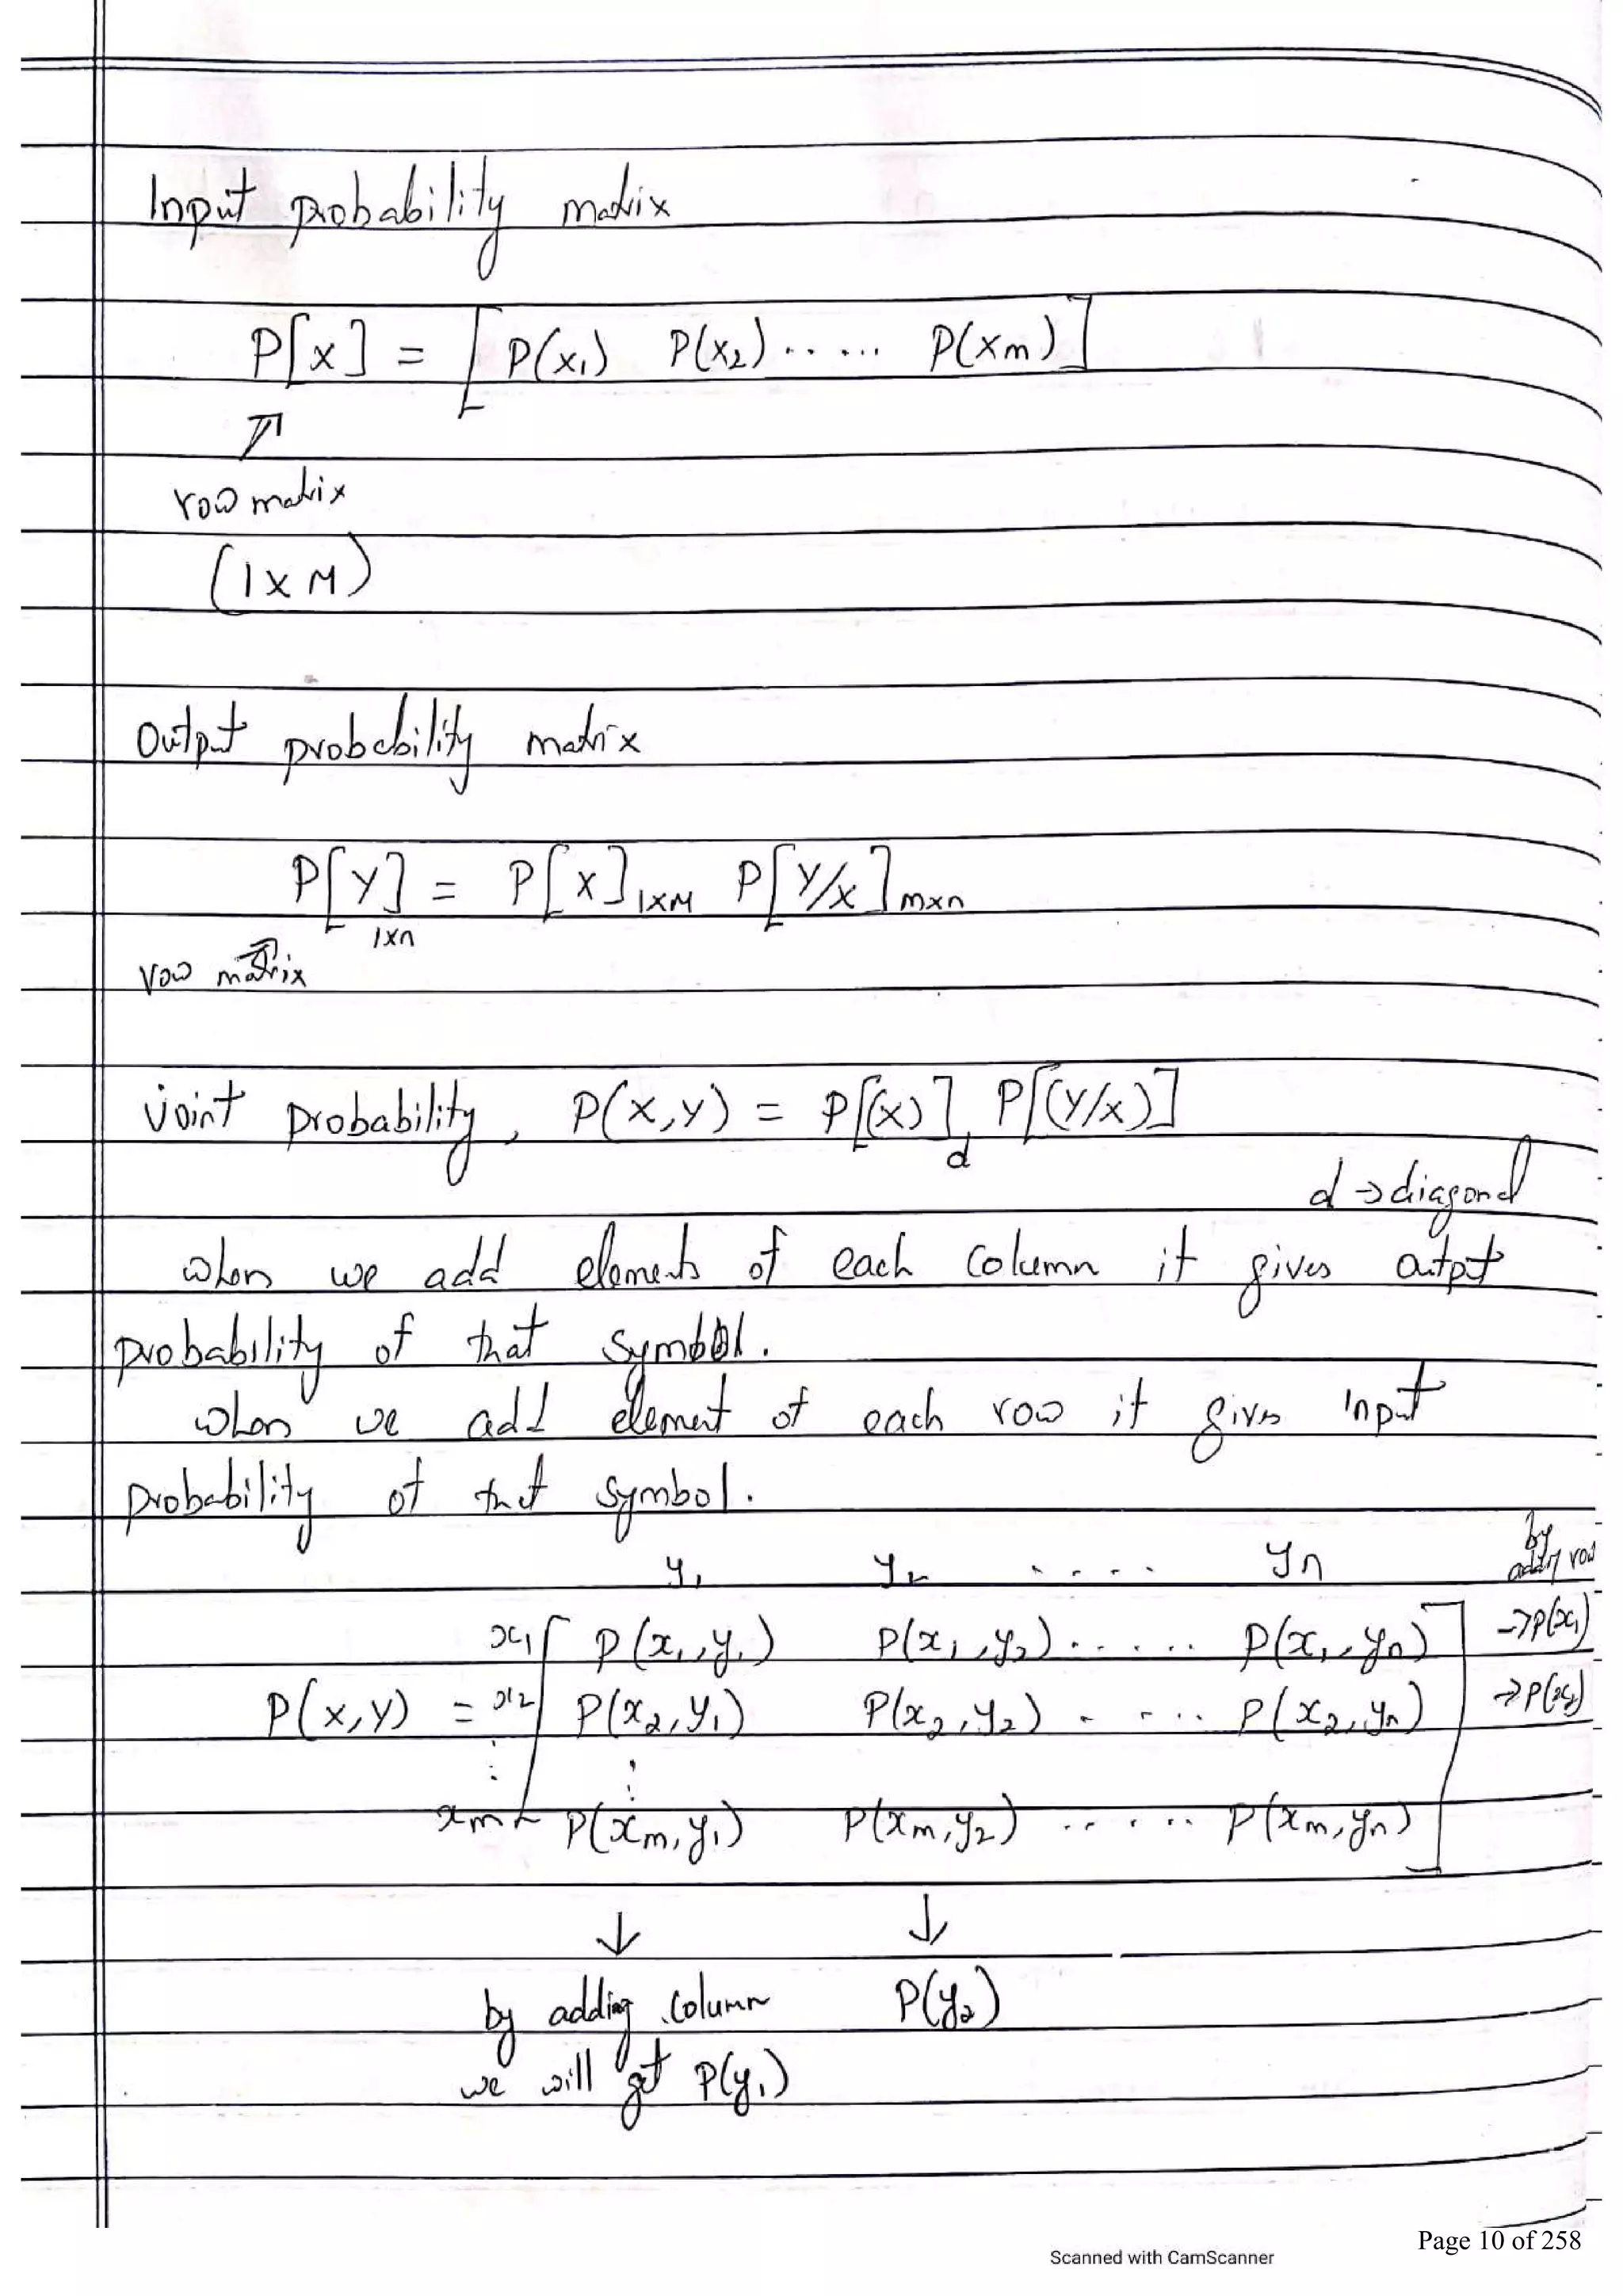 Input probability matrix
P[X] = [P(x₁) P(x₂)...... P(xm)]
↗
row matrix
(1×M)
Output probability matrix
P[Y]1×n = P[X]1×M P[Y/X]m×n
row matrix
joint probability, P(X,Y) = P[(X)]d P[(Y/X)]
d → diagonal
when we add elements of each column it gives output
probability of that symbol.
when we add element of each row it gives input
probability of that symbol.
y₁ y₂ ..... yn by adding row
x₁ [ P(x₁,y₁) P(x₁,y₂)...... P(x₁,yn) ] →P(x₁)
P(X,Y) = x₂ P(x₂,y₁) P(x₂,y₂) ..... P(x₂,yn) →P(x₂)
: :
xm P(xm,y₁) P(xm,y₂) ...... P(xm,yn)
↓ ↓
by adding column P(y₂)
we will get P(y₁)
Scanned with CamScanner
Page 10 of 258